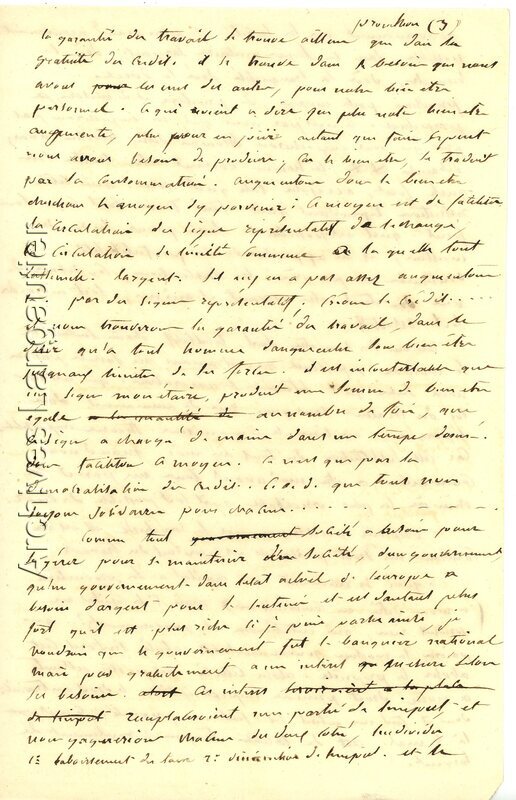 proudhon (3)
la garantie du travail se trouve ailleurs que dans la
gratuité du crédit. il se trouve dans le besoin que nous
avons pour les uns des autres, pour notre bien etre
personnel. Ce qui revient a dire que plus notre bien etre
augmente, plus pour en jouir autant que faire se peut
nous avons besoin de produire, car le bien etre, se traduit
par la consommation. augmentons donc le bien etre
cherchons le moyen d'y parvenir. Ce moyen est de faciliter
la circulation du signe représentatif de l'echange
la circulation de l'unité commune a la quelle tout
l'argent. Il n'y en a pas assez augmentons
par des signes représentatifs. Créons le crédit.....
et nous trouverons la garantie du travail, dans le
désir qu'a tout homme d'augmenter son bien etre
jusqu'aux limites de ses forces. il est incontestable que
un signe monétaire, produit une somme de bien etre
egale a la quantité de au nombre de fois, que
ce signe a changé de mains dans un temps donné.
pour faciliter ce moyen. Ce n'est que par la
démocratisation du crédit. C.a.d. que tous nous
soyons solidaires pour chacun
Comme tout gouvernement société a besoin pour
se gérer pour se maintenir société, d'un gouvernement
qu'un gouvernement dans l'etat actuel de l'europe a
besoin d'argent pour se soutenir et est d'autant plus
fort qu'il est plus riche si je puis parler ainsi, je
voudrais que le gouvernement fut le banquier national
mais pas gratuitement a un interet selon
ses besoins. Ces interets seroient a la place
de l'impot remplaceroient une partie de l'impot, et
nous gagnerions chacun de deux cotés, individus
1° l'abaissement du taux 2° diminution de l'impot. et le
/Archives|Largautier|